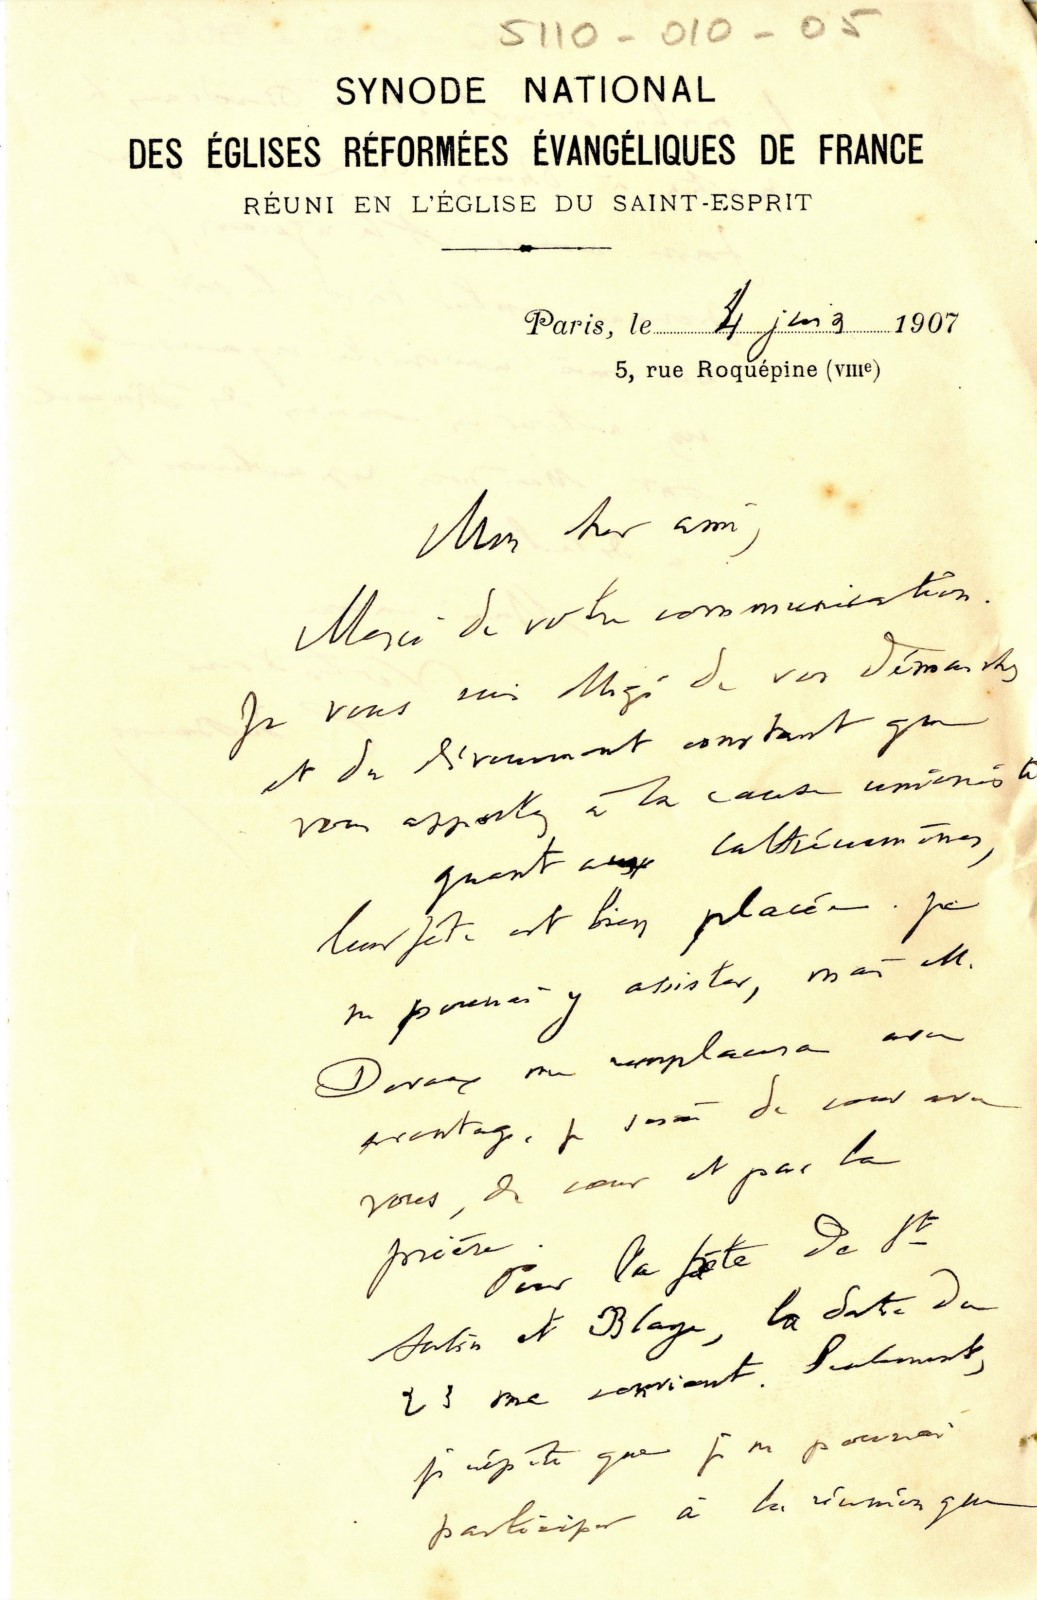 5110-010-05
SYNODE NATIONAL
DES ÉGLISES RÉFORMÉES ÉVANGÉLIQUES DE FRANCE
RÉUNI EN L'ÉGLISE DU SAINT-ESPRIT
Paris, le 4 juin 1907
5, rue Roquépine (VIIIe)
Mon cher ami,
Merci de votre communication.
Je vous suis obligé de vos démarches
et du dévouement constant que
vous apportez à la cause unioniste
quant aux cathécumènes,
leur fête est bien placée. Je
ne pourrai y assister, mais M.
me remplacera avec
avantage. Je serai de cœur avec
vous, de cœur et par la
prière.
Pour la fête de St
et Blaye, la date du
23 me convient. Seulement,
je répète que je ne pourrai
participer à la réunion que